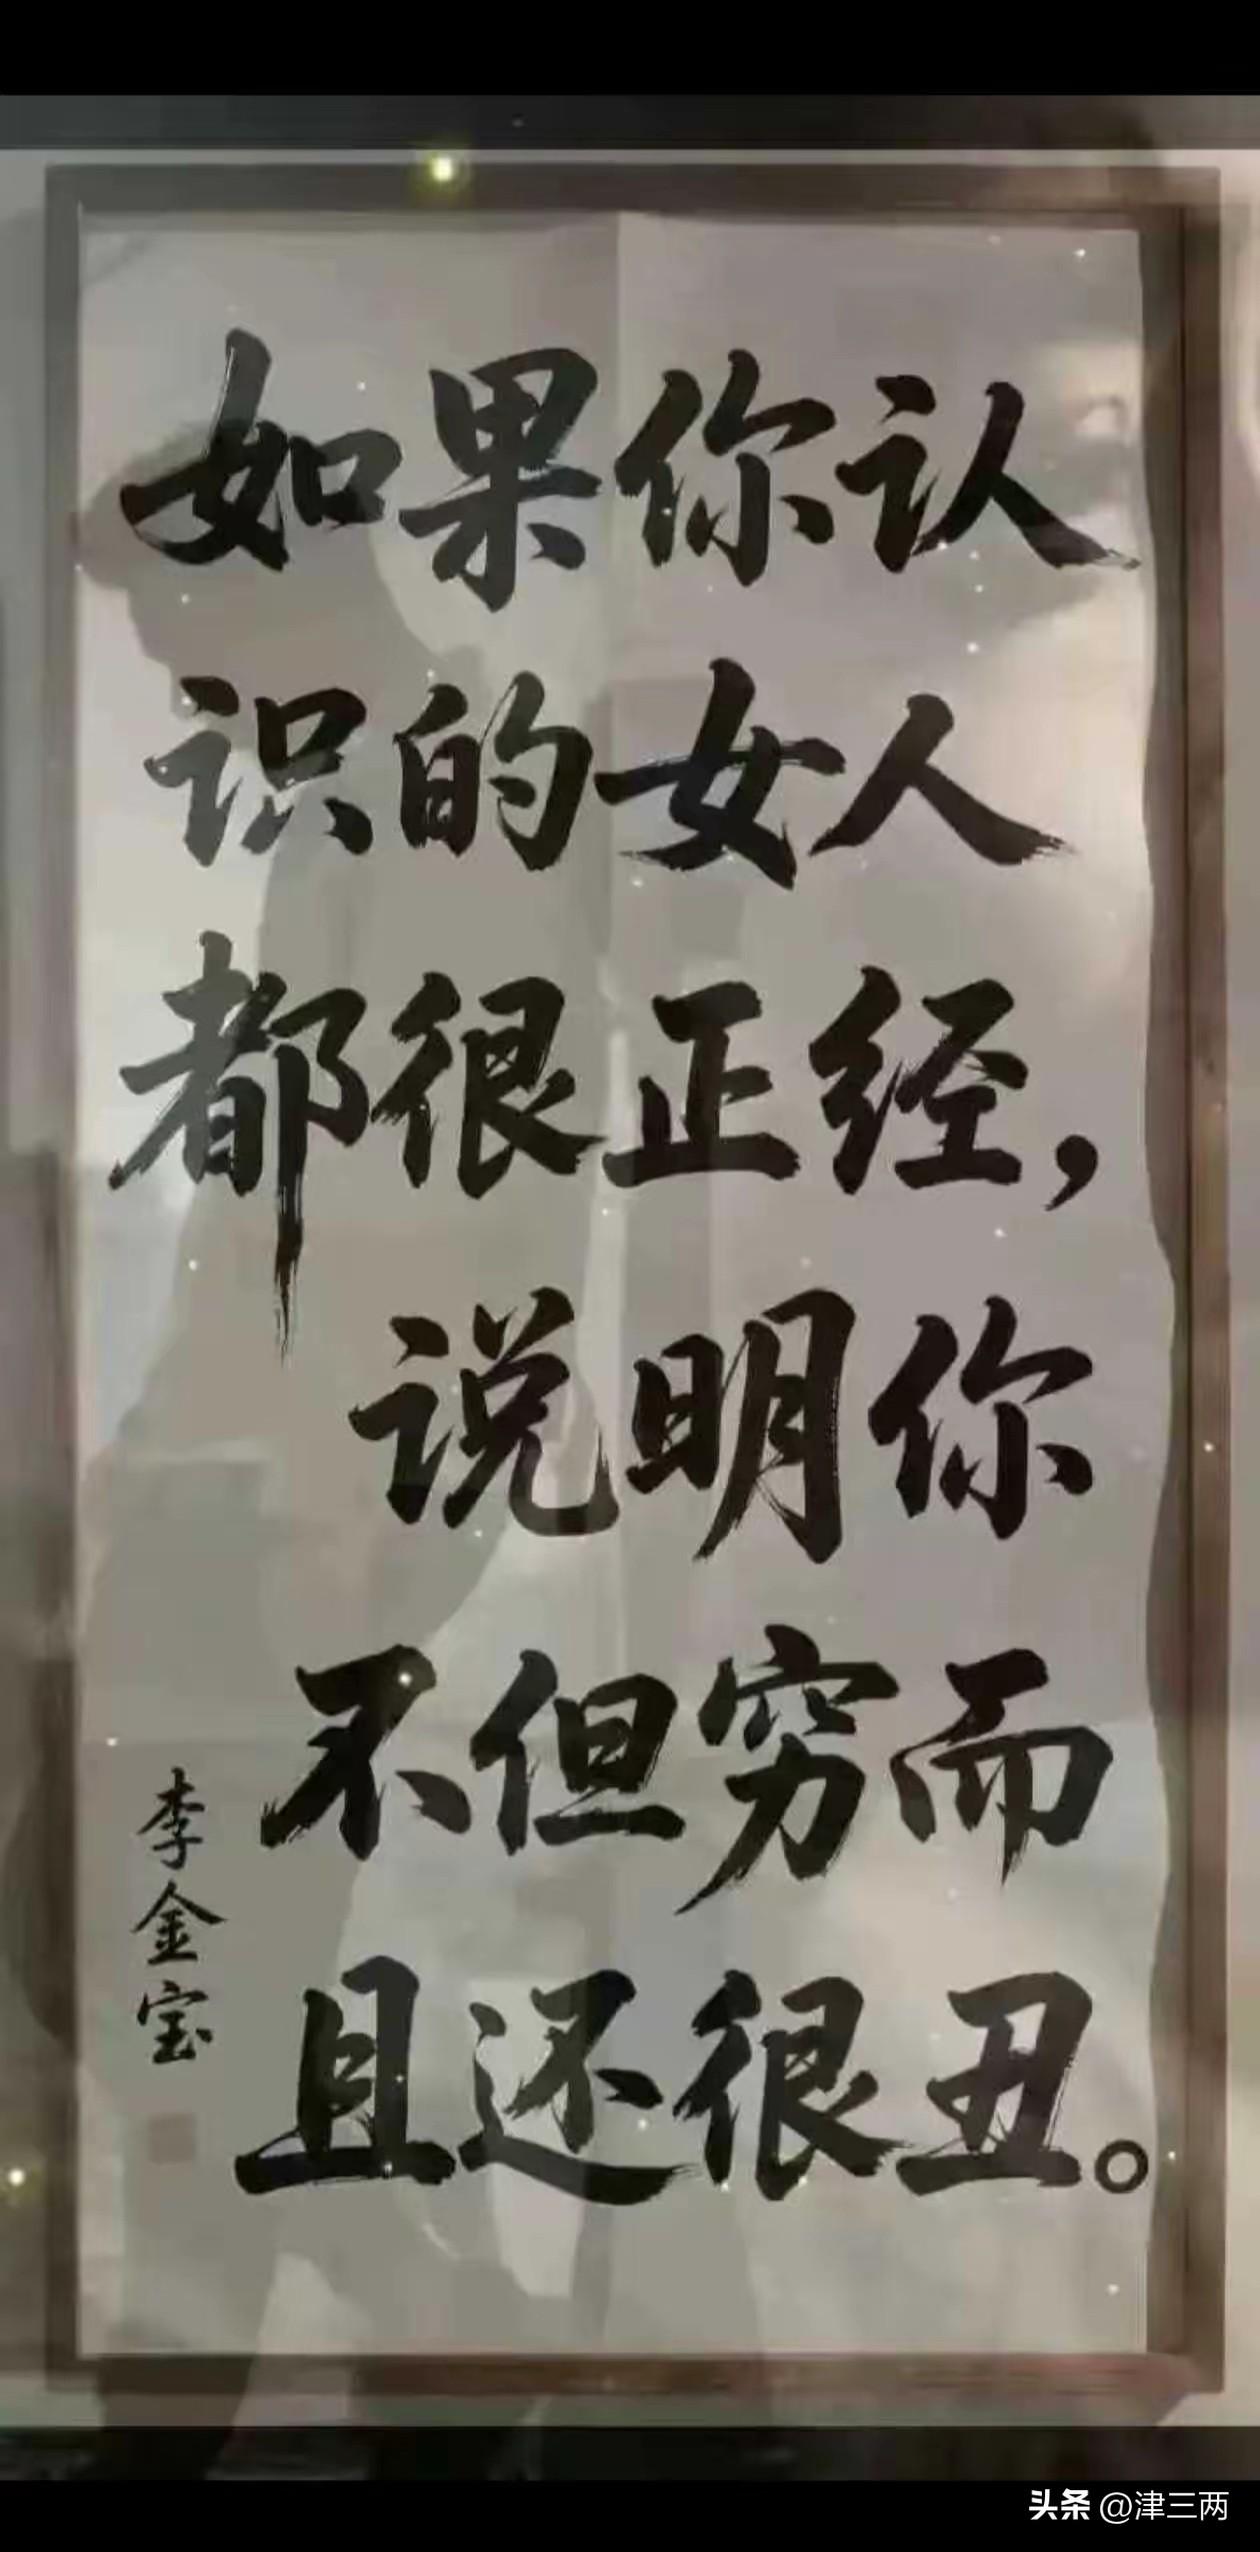 如果你认
识的女人
都很正经，
说明你
不但穷而
且还很丑。
李金宝
头条 @津三两